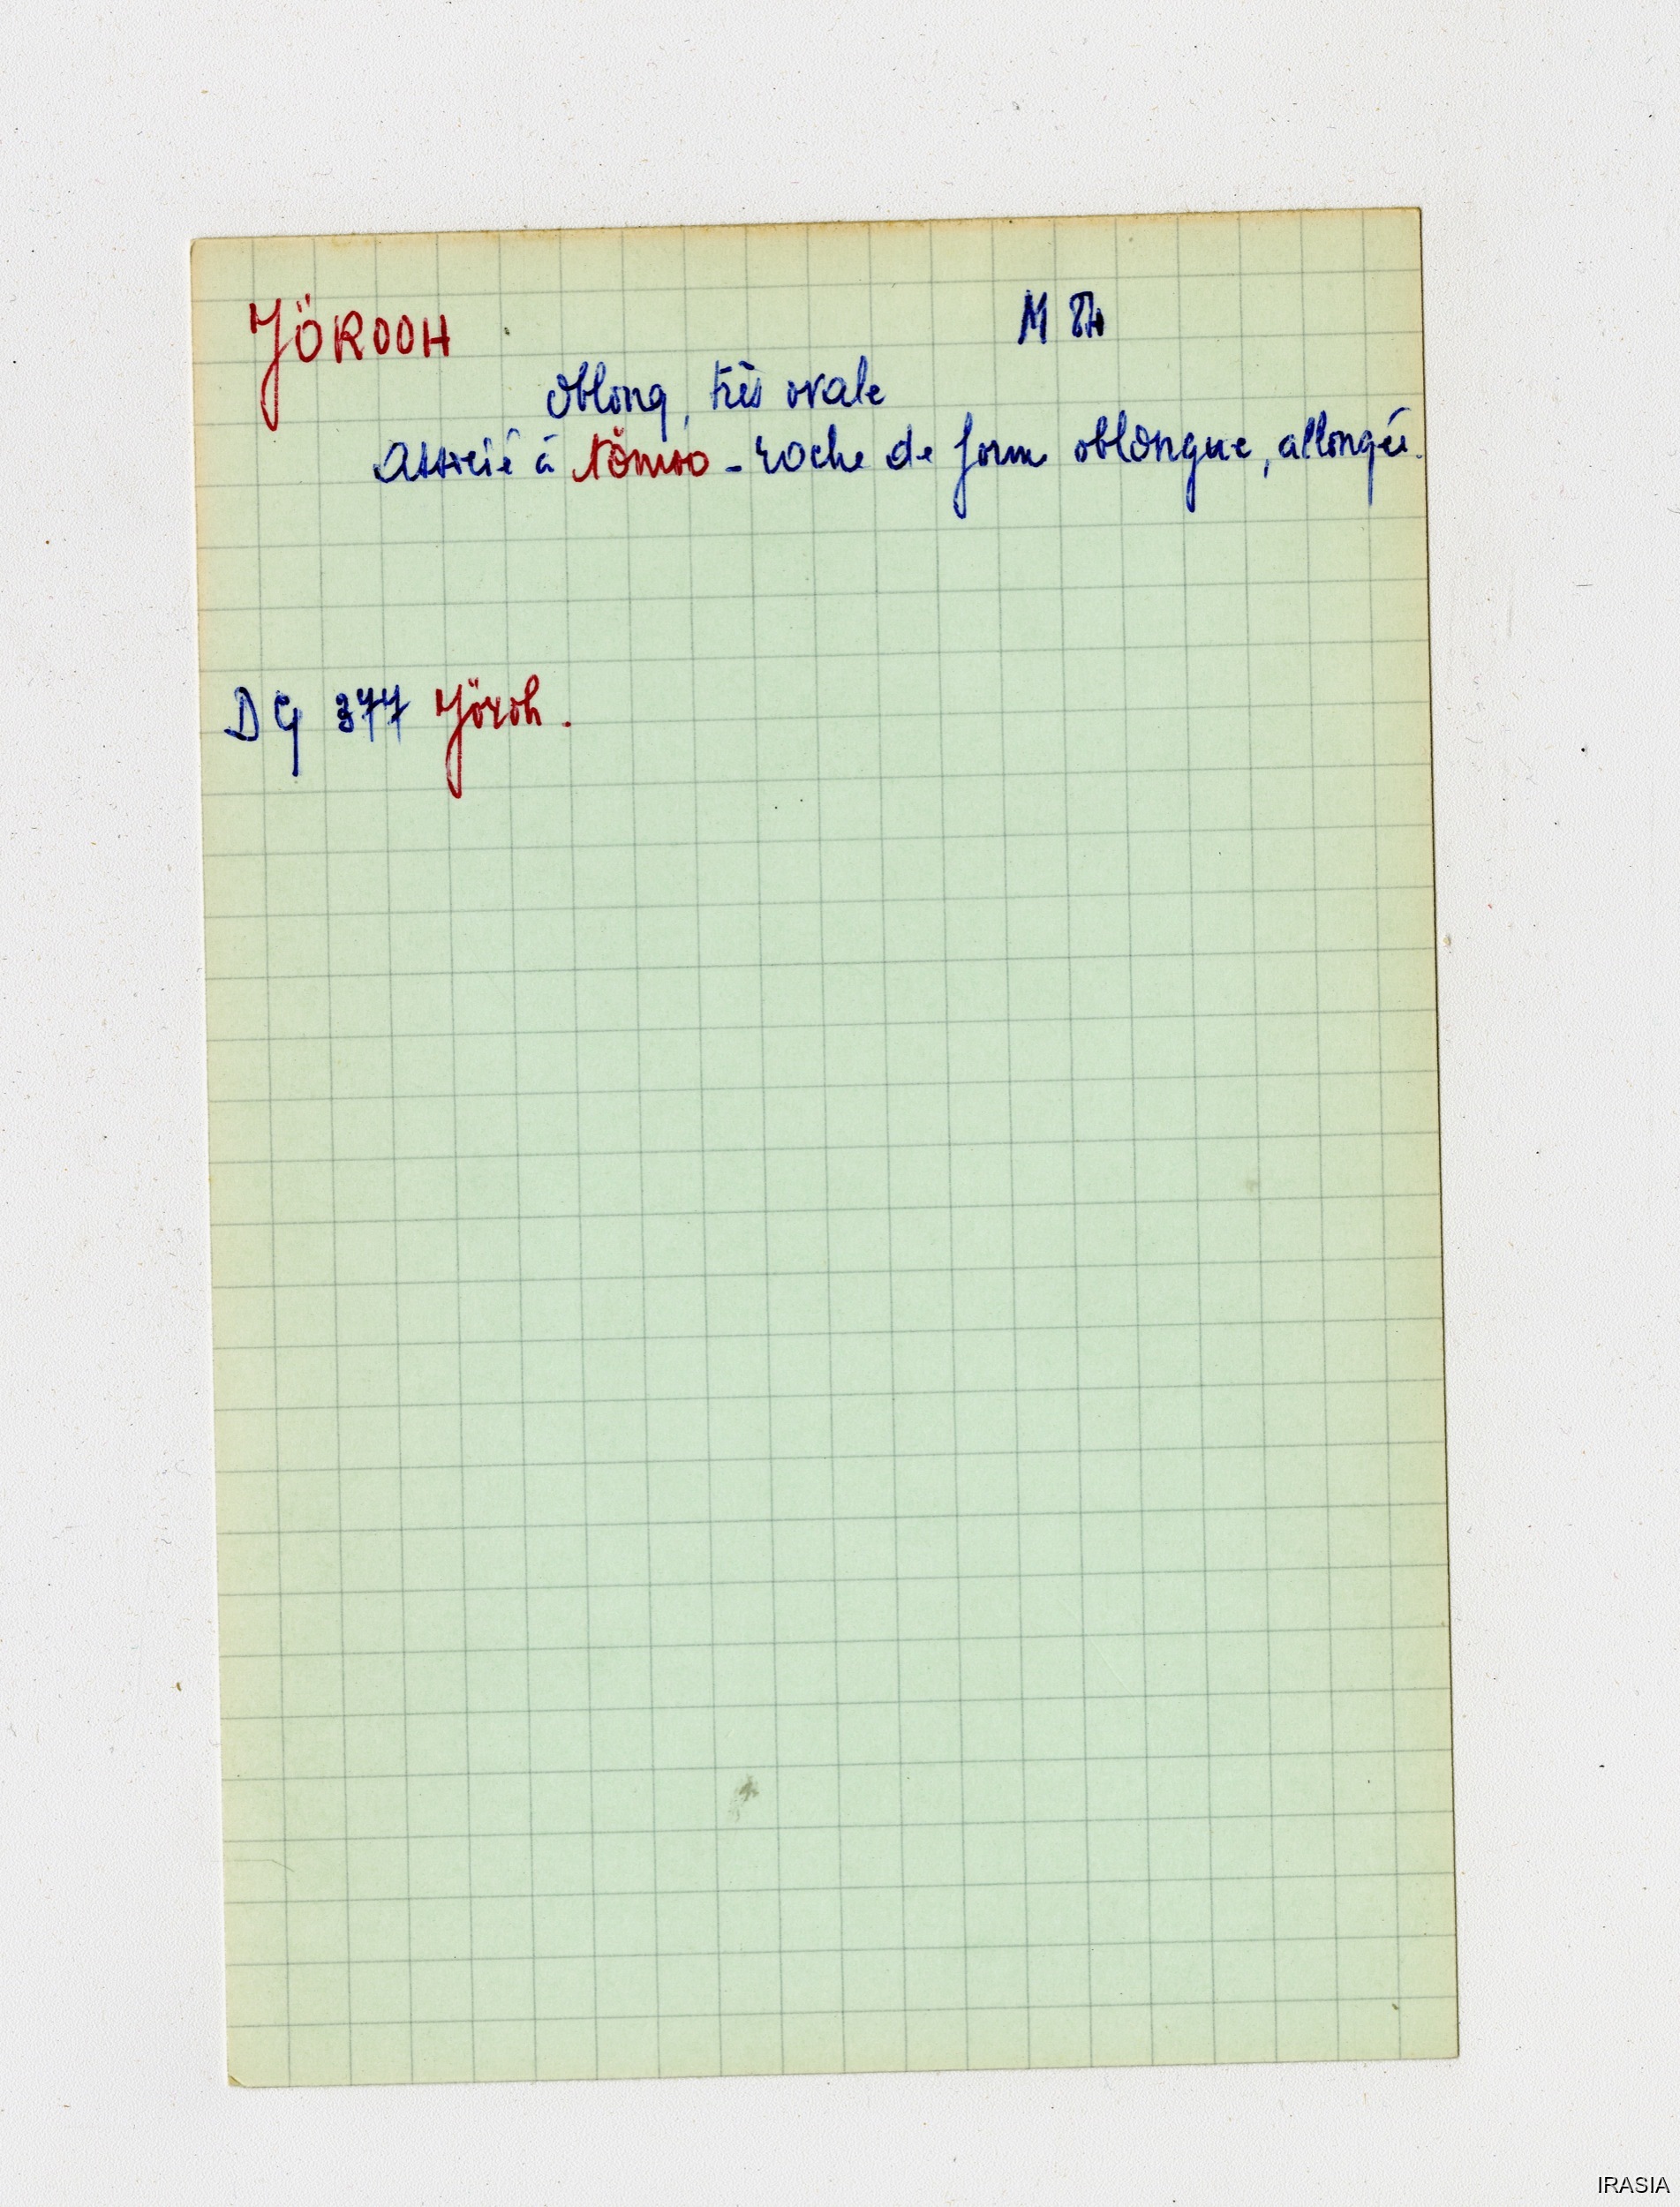 JÖROOH
M Đh
Oblong, très ovale
Associé à tömoo - roche de forme oblongue, allongée.
DG 377 Jöroh.
IRASIA